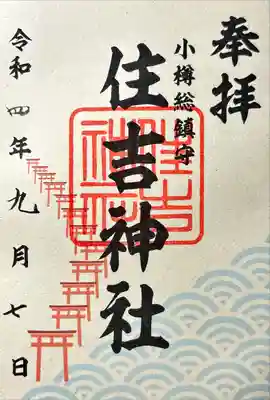 奉拝
小樽総鎮守
住吉神社
住吉神社
令和四年九月七日